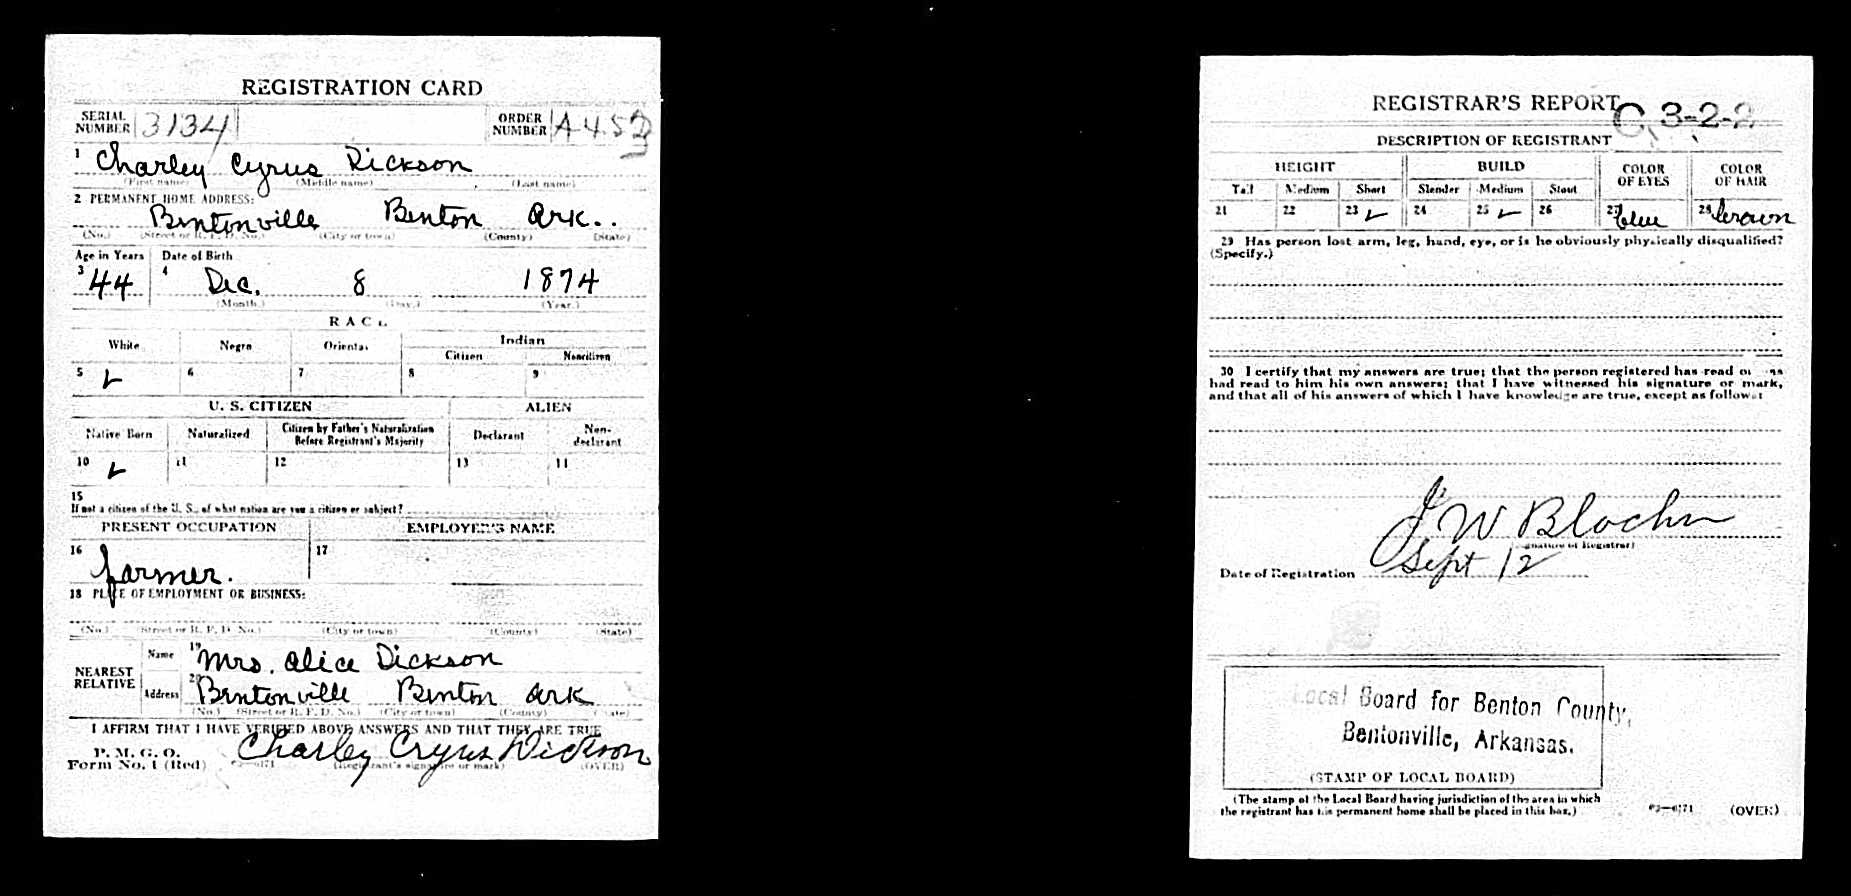 REGISTRATION CARD
SERIAL NUMBER 3134 ORDER NUMBER A452
1 Charley Cyrus Dickson
(First name) (Middle name) (Last name)
2 PERMANENT HOME ADDRESS:
Bentonville Benton Ark..
(No.) (Street or R. F. D. No.) (City or town) (County) (State)
Age in Years Date of Birth
3 44 4 Dec. 8 1874
(Month.) (Day.) (Year.)
RACE
White Negro Oriental Indian
Citizen Noncitizen
5 ✓ 6 7 8 9
U. S. CITIZEN ALIEN
Native Born Naturalized Citizen by Father's Naturalization Before Registrant's Majority Declarant Non-declarant
10 ✓ 11 12 13 14
15
If not a citizen of the U. S., of what nation are you a citizen or subject?
PRESENT OCCUPATION EMPLOYER'S NAME
16 farmer. 17
18 PLACE OF EMPLOYMENT OR BUSINESS:
(No.) (Street or R. F. D. No.) (City or town) (County) (State)
NEAREST RELATIVE Name 19 Mrs. Alice Dickson
Address 20 Bentonville Benton Ark
(No.) (Street or R. F. D. No.) (City or town) (County) (State)
I AFFIRM THAT I HAVE VERIFIED ABOVE ANSWERS AND THAT THEY ARE TRUE
P. M. G. O.
Form No. 1 (Red) Charley Cryus Dickson
(Registrant's signature or mark) (OVER)
REGISTRAR'S REPORT
C 3-2-2
DESCRIPTION OF REGISTRANT
HEIGHT BUILD COLOR OF EYES COLOR OF HAIR
Tall Medium Short Slender Medium Stout
21 22 23 ✓ 24 25 ✓ 26 27 blue 28 brown
29 Has person lost arm, leg, hand, eye, or is he obviously physically disqualified?
(Specify.)
30 I certify that my answers are true; that the person registered has read or has
had read to him his own answers; that I have witnessed his signature or mark,
and that all of his answers of which I have knowledge are true, except as follows:
J W
(Signature of Registrar)
Date of Registration Sept 12
Local Board for Benton County,
Bentonville, Arkansas.
(STAMP OF LOCAL BOARD)
(The stamp of the Local Board having jurisdiction of the area in which
the registrant has his permanent home shall be placed in this box.)
(OVER)